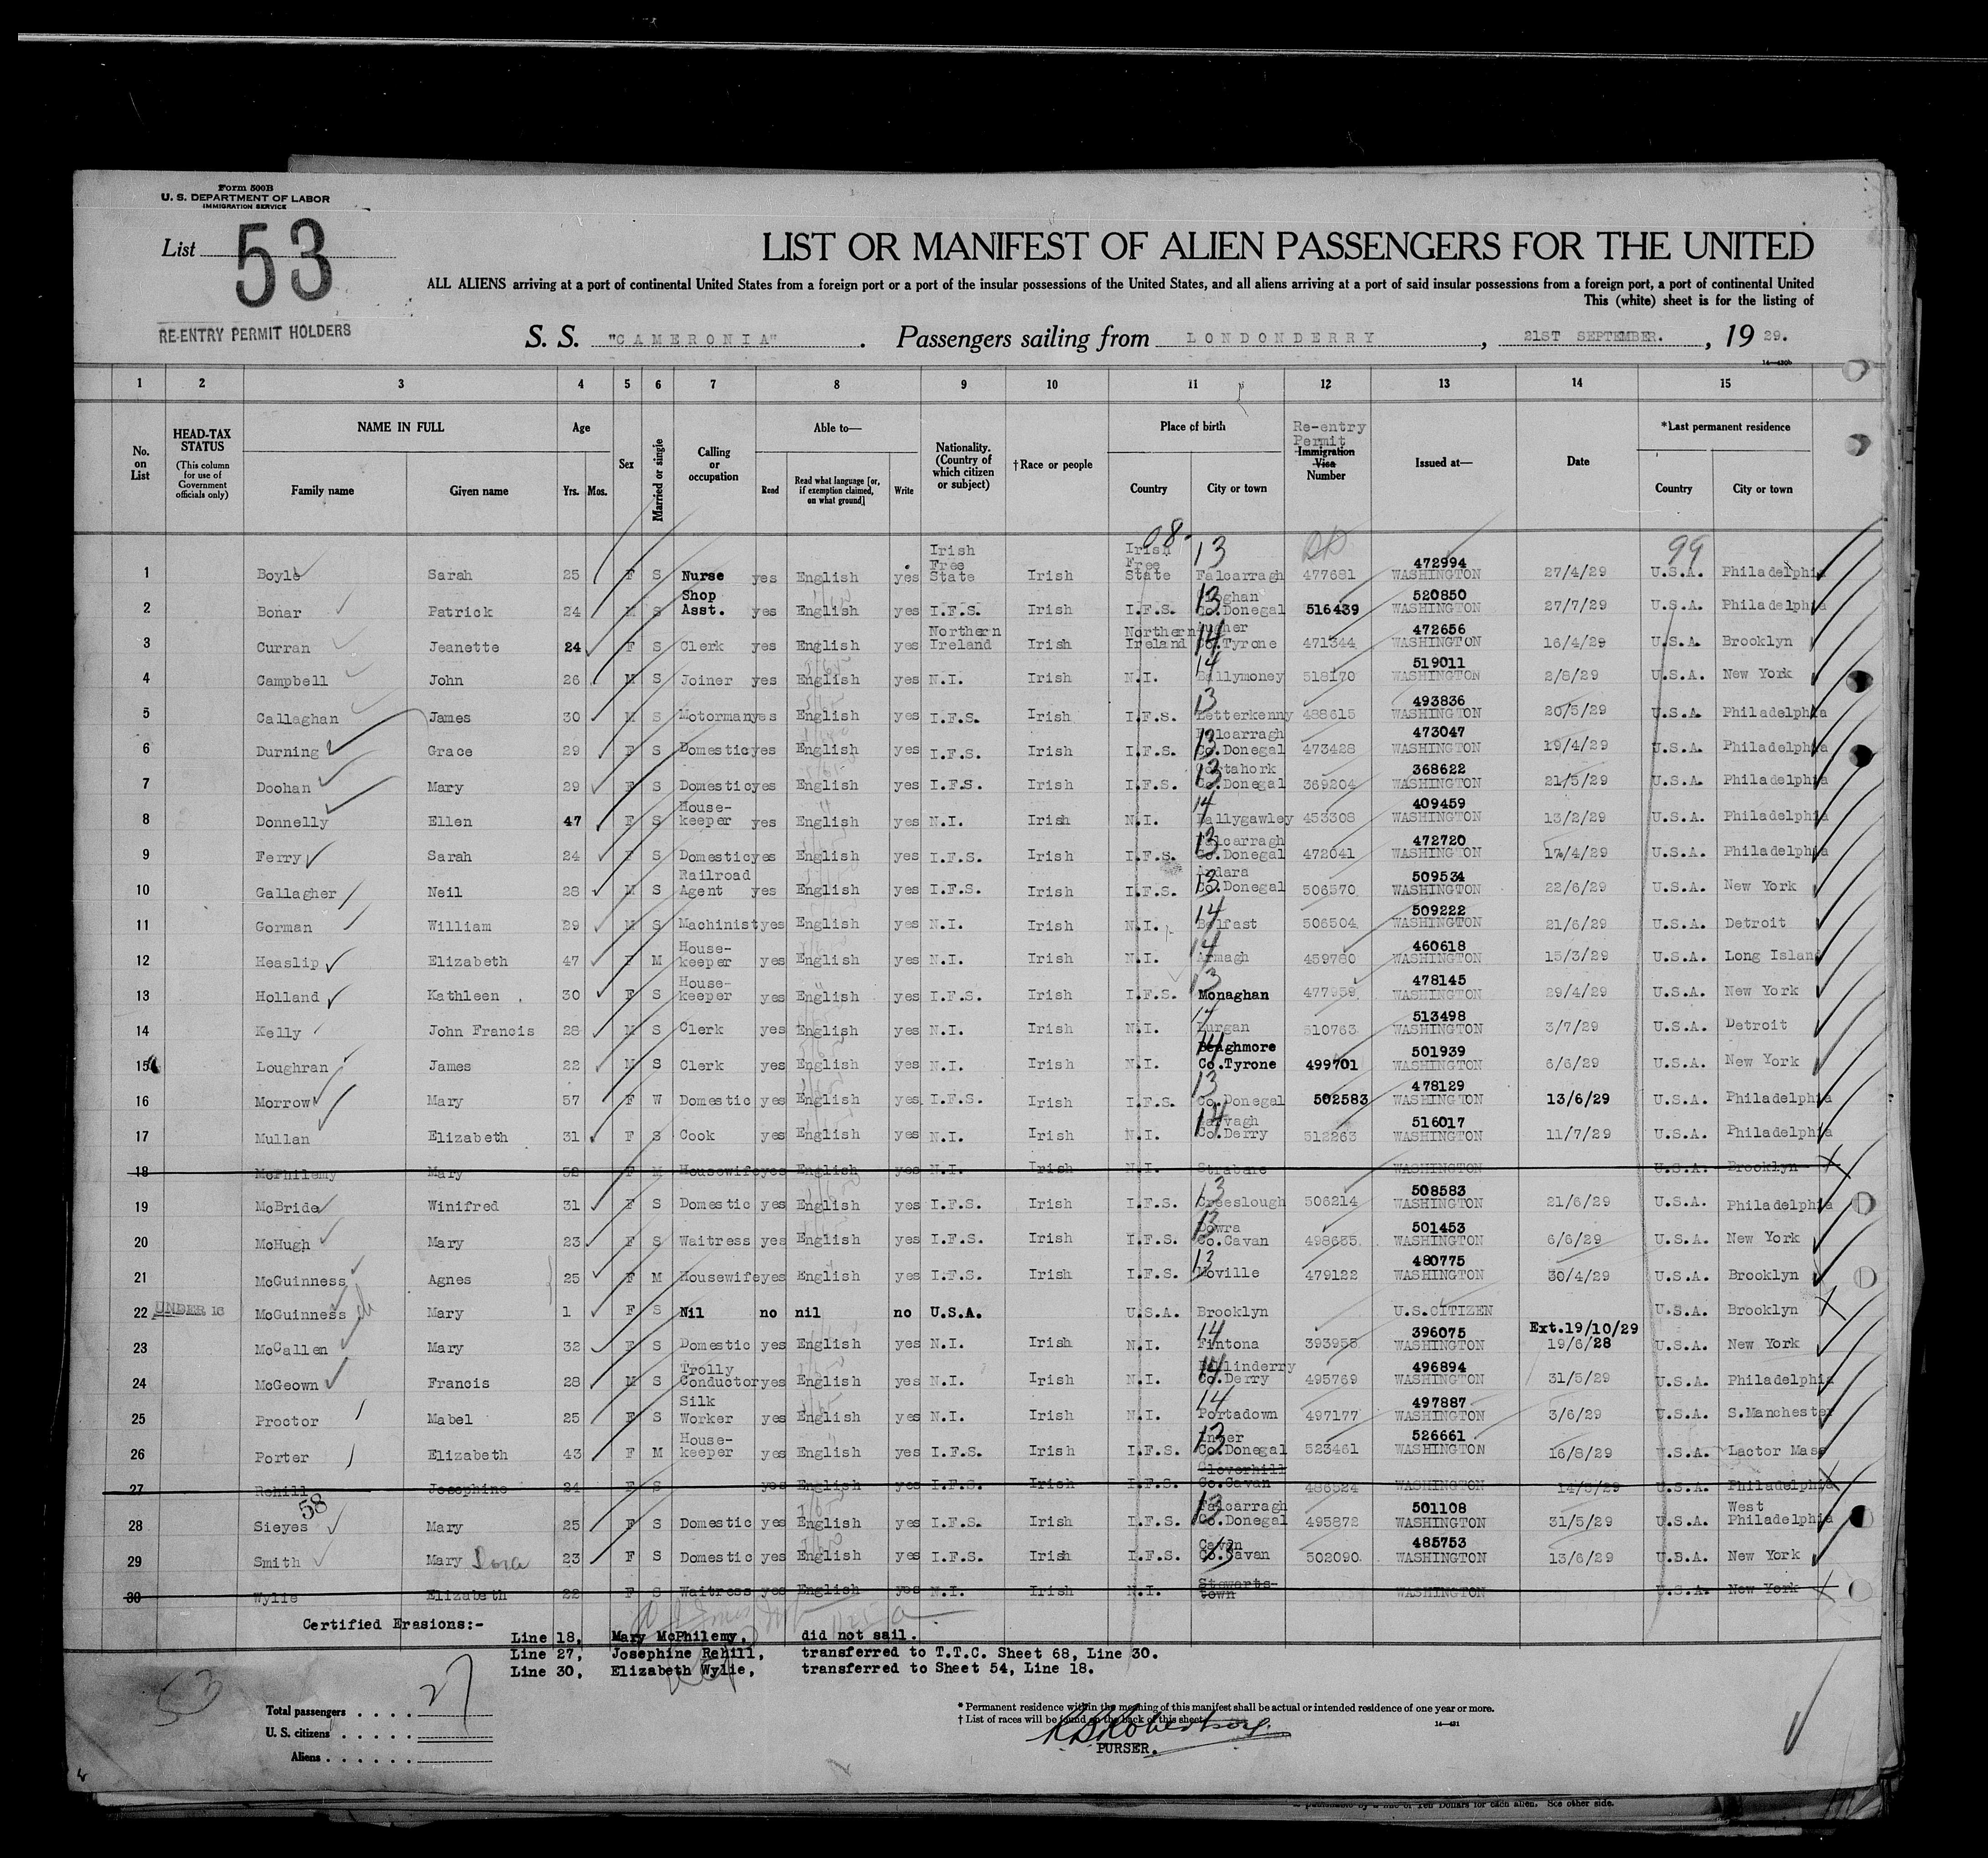 Form 500B
U. S. DEPARTMENT OF LABOR
IMMIGRATION SERVICE
List 53
RE-ENTRY PERMIT HOLDERS
LIST OR MANIFEST OF ALIEN PASSENGERS FOR THE UNITED
ALL ALIENS arriving at a port of continental United States from a foreign port or a port of the insular possessions of the United States, and all aliens arriving at a port of said insular possessions from a foreign port, a port of continental United
This (white) sheet is for the listing of
S. S. "CAMERONIA" . Passengers sailing from LONDONDERRY , 21ST SEPTEMBER. , 19 29.
14—430b
1 2 3 4 5 6 7 8 9 10 11 12 13 14 15
No. on List
HEAD-TAX STATUS (This column for use of Government officials only)
NAME IN FULL Family name Given name
Age Yrs. Mos.
Sex
Married or single
Calling or occupation
Able to— Read Read what language [or, if exemption claimed, on what ground] Write
Nationality. (Country of which citizen or subject)
†Race or people
Place of birth Country City or town
Re-entry Permit Immigration Visa Number
Issued at—
Date
*Last permanent residence Country City or town
08- 13 99
1 Boyle Sarah 25 F S Nurse yes English yes Irish Free State Irish Irish Free State Falcarragh 477681 472994 WASHINGTON 27/4/29 U.S.A. Philadelphia
2 Bonar Patrick 24 M S Shop Asst. yes English yes I.F.S. Irish I.F.S. 13 Co.Donegal 516439 520850 WASHINGTON 27/7/29 U.S.A. Philadelphia
3 Curran Jeanette 24 F S Clerk yes English yes Northern Ireland Irish Northern Ireland 14 Co.Tyrone 471344 472656 WASHINGTON 16/4/29 U.S.A. Brooklyn
4 Campbell John 26 M S Joiner yes English yes N.I. Irish N.I. 14 Ballymoney 518170 519011 WASHINGTON 2/8/29 U.S.A. New York
5 Callaghan James 30 M S Motorman yes English yes I.F.S. Irish I.F.S. 13 Letterkenny 488615 493836 WASHINGTON 20/5/29 U.S.A. Philadelphia
6 Durning Grace 29 F S Domestic yes English yes I.F.S. Irish I.F.S. 13 Falcarragh Co.Donegal 473428 473047 WASHINGTON 19/4/29 U.S.A. Philadelphia
7 Doohan Mary 29 F S Domestic yes English yes I.F.S. Irish I.F.S. 13 Gortahork Co.Donegal 369204 368622 WASHINGTON 21/5/29 U.S.A. Philadelphia
8 Donnelly Ellen 47 F S House-keeper yes English yes N.I. Irish N.I. 14 Ballygawley 453308 409459 WASHINGTON 13/2/29 U.S.A. Philadelphia
9 Ferry Sarah 24 F S Domestic yes English yes I.F.S. Irish I.F.S. 13 Falcarragh Co.Donegal 472041 472720 WASHINGTON 17/4/29 U.S.A. Philadelphia
10 Gallagher Neil 28 M S Railroad Agent yes English yes I.F.S. Irish I.F.S. 13 Ardara Co.Donegal 506570 509534 WASHINGTON 22/6/29 U.S.A. New York
11 Gorman William 29 M S Machinist yes English yes N.I. Irish N.I. 14 Belfast 506504 509222 WASHINGTON 21/6/29 U.S.A. Detroit
12 Heaslip Elizabeth 47 F M House-keeper yes English yes N.I. Irish N.I. 14 Armagh 459780 460618 WASHINGTON 15/3/29 U.S.A. Long Island
13 Holland Kathleen 30 F S House-keeper yes English yes I.F.S. Irish I.F.S. 13 Monaghan 477959 478145 WASHINGTON 29/4/29 U.S.A. New York
14 Kelly John Francis 28 M S Clerk yes English yes N.I. Irish N.I. 14 Lurgan 510763 513498 WASHINGTON 3/7/29 U.S.A. Detroit
15 Loughran James 22 M S Clerk yes English yes N.I. Irish N.I. 14 Beaghmore Co.Tyrone 499701 501939 WASHINGTON 6/6/29 U.S.A. New York
16 Morrow Mary 57 F W Domestic yes English yes I.F.S. Irish I.F.S. 13 Co.Donegal 502583 478129 WASHINGTON 13/6/29 U.S.A. Philadelphia
17 Mullan Elizabeth 31 F S Cook yes English yes N.I. Irish N.I. 14 Garvagh Co.Derry 512263 516017 WASHINGTON 11/7/29 U.S.A. Philadelphia
18 McPhilemy Mary 52 F M Housewife yes English yes N.I. Irish N.I. Strabane WASHINGTON U.S.A. Brooklyn
19 McBride Winifred 31 F S Domestic yes English yes I.F.S. Irish I.F.S. 13 Creeslough 506214 508583 WASHINGTON 21/6/29 U.S.A. Philadelphia
20 McHugh Mary 23 F S Waitress yes English yes I.F.S. Irish I.F.S. 13 Dowra Co.Cavan 498655 501453 WASHINGTON 6/6/29 U.S.A. New York
21 McGuinness Agnes 25 F M Housewife yes English yes I.F.S. Irish I.F.S. 13 Moville 479122 480775 WASHINGTON 30/4/29 U.S.A. Brooklyn
22 UNDER 16 McGuinness Mary 1 F S Nil no nil no U.S.A. U.S.A. Brooklyn U.S.CITIZEN U.S.A. Brooklyn
23 McCallen Mary 32 F S Domestic yes English yes N.I. Irish N.I. 14 Fintona 393955 396075 WASHINGTON Ext.19/10/29 19/6/28 U.S.A. New York
24 McGeown Francis 28 M S Trolly Conductor yes English yes N.I. Irish N.I. 14 Ballinderry Co.Derry 495769 496894 WASHINGTON 31/5/29 U.S.A. Philadelphia
25 Proctor Mabel 25 F S Silk Worker yes English yes N.I. Irish N.I. 14 Portadown 497177 497887 WASHINGTON 3/6/29 U.S.A. S.Manchester
26 Porter Elizabeth 43 F M House-keeper yes English yes I.F.S. Irish I.F.S. 13 Inver Co.Donegal 523461 526661 WASHINGTON 16/8/29 U.S.A. Lactor Mass
27 Rehill Josephine 24 F S yes English yes I.F.S. Irish I.F.S. Cloverhill Co.Cavan 486524 WASHINGTON 14/5/29 U.S.A. Philadelphia
58
28 Sieyes Mary 25 F S Domestic yes English yes I.F.S. Irish I.F.S. 13 Falcarragh Co.Donegal 495872 501108 WASHINGTON 31/5/29 U.S.A. West Philadelphia
29 Smith Mary Dora 23 F S Domestic yes English yes I.F.S. Irish I.F.S. 13 Cavan Co.Cavan 502090 485753 WASHINGTON 13/6/29 U.S.A. New York
30 Wylie Elizabeth 22 F S Waitress yes English yes N.I. Irish N.I. Stewarts-town WASHINGTON U.S.A. New York
Certified Erasions:-
Line 18, Mary McPhilemy, did not sail.
Line 27, Josephine Rehill, transferred to T.T.C. Sheet 68, Line 30.
Line 30, Elizabeth Wylie, transferred to Sheet 54, Line 18.
53
Total passengers . . . . 27
U. S. citizens . . . . .
Aliens . . . . . .
* Permanent residence within the meaning of this manifest shall be actual or intended residence of one year or more.
† List of races will be found on the back of this sheet.
14—431
PURSER.
Ten Dollars for each alien. See other side.